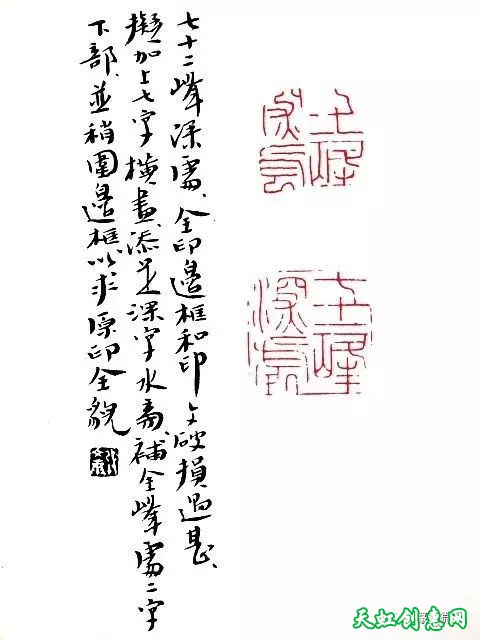 七十二峰深處、全印邊框和印文破損過甚、
擬加上七字橫畫、添足深字水旁、補全峰處二字
下部、並稍圍邊框、以求原印全貌
七十二峰深處
天虹创意网